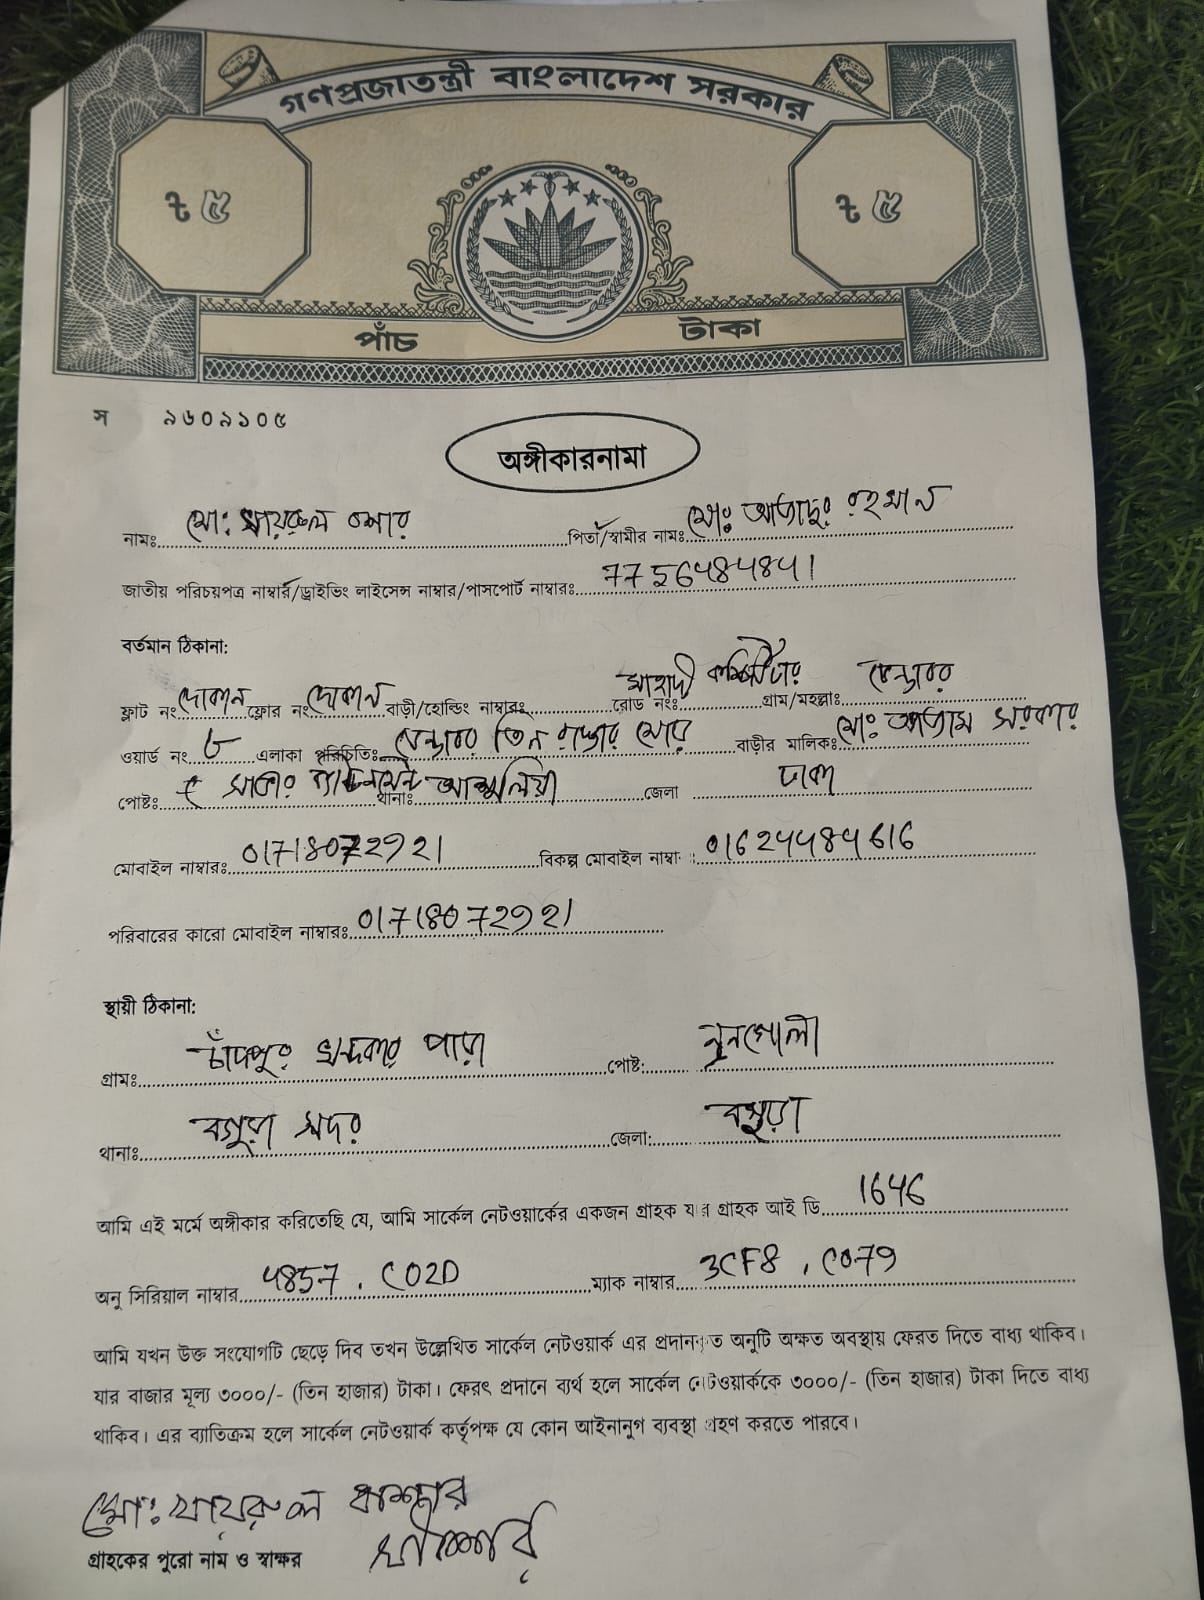 গণপ্রজাতন্ত্রী বাংলাদেশ সরকার
৳ ৫ ৳ ৫
পাঁচ টাকা
স ৯৬০৯১০৫
অঙ্গীকারনামা
নামঃ মো: খায়রুল পিতা/স্বামীর নামঃ মোঃ রহমান
জাতীয় পরিচয়পত্র নাম্বার/ড্রাইভিং লাইসেন্স নাম্বার/পাসপোর্ট নাম্বারঃ 7756484841
বর্তমান ঠিকানা:
ফ্লাট নং দোকান ফ্লোর নং দোকান বাড়ী/হোল্ডিং নাম্বারঃ রোড নংঃ গ্রাম/মহল্লাঃ
ওয়ার্ড নং ৮ এলাকা পরিচিতিঃ তিন রাস্তার মোড় বাড়ীর মালিকঃ মোঃ সরকার
পোষ্টঃ থানাঃ আশুলিয়া জেলা ঢাকা
মোবাইল নাম্বারঃ 01718072921 বিকল্প মোবাইল নাম্বা ঃ 01624484616
পরিবারের কারো মোবাইল নাম্বারঃ 01718072921
স্থায়ী ঠিকানা:
গ্রামঃ চাঁদপুর খন্দকার পাড়া পোষ্ট: নুনগোলা
থানাঃ বগুড়া সদর জেলা: বগুড়া
আমি এই মর্মে অঙ্গীকার করিতেছি যে, আমি সার্কেল নেটওয়ার্কের একজন গ্রাহক যার গ্রাহক আই ডি 1646
অনু সিরিয়াল নাম্বার 4857 . C02D ম্যাক নাম্বার 3CF8 . C079
আমি যখন উক্ত সংযোগটি ছেড়ে দিব তখন উল্লেখিত সার্কেল নেটওয়ার্ক এর প্রদানকৃত অনুটি অক্ষত অবস্থায় ফেরত দিতে বাধ্য থাকিব।
যার বাজার মূল্য ৩০০০/- (তিন হাজার) টাকা। ফেরৎ প্রদানে ব্যর্থ হলে সার্কেল নেটওয়ার্ককে ৩০০০/- (তিন হাজার) টাকা দিতে বাধ্য
থাকিব। এর ব্যাতিক্রম হলে সার্কেল নেটওয়ার্ক কর্তৃপক্ষ যে কোন আইনানুগ ব্যবস্থা গ্রহণ করতে পারবে।
মো: খায়রুল
গ্রাহকের পুরো নাম ও স্বাক্ষর